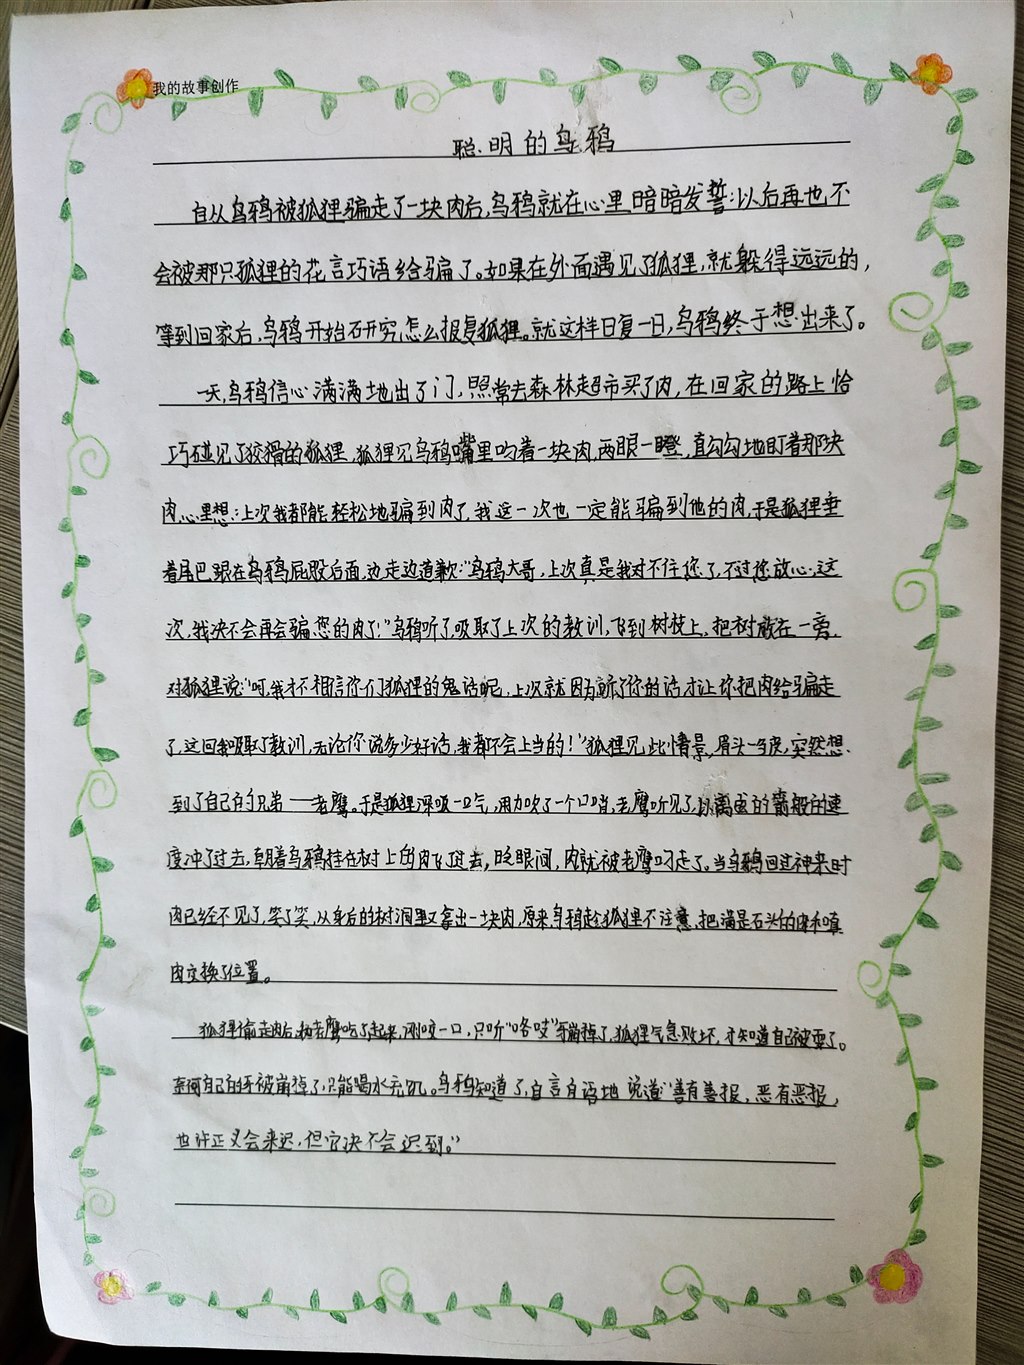 我的故事创作
聪明的乌鸦
自从乌鸦被狐狸骗走了一块肉后,乌鸦就在心里暗暗发誓:以后再也不
会被那只狐狸的花言巧语给骗了。如果在外面遇见了狐狸,就躲得远远的,
等到回家后,乌鸦开始研究怎么报复狐狸。就这样日复一日,乌鸦终于想出来了。
一天,乌鸦信心满满地出了门,照常去森林超市买了肉,在回家的路上恰
巧碰见了狡猾的狐狸,狐狸见乌鸦嘴里叼着一块肉,两眼一瞪,直勾勾地盯着那块
肉,心里想:上次我都能轻松地骗到肉了,我这一次也一定能骗到他的肉,于是狐狸垂
着尾巴跟在乌鸦屁股后面,边走边道歉:“乌鸦大哥,上次真是我对不住您了,不过您放心,这
次,我决不会再会骗您的肉了!”乌鸦听了,吸取了上次的教训,飞到树枝上,把树放在一旁,
对狐狸说:“呵,我才不相信你们狐狸的鬼话呢,上次就因为听了你的话才让你把肉给骗走
了,这回我吸取了教训,无论你说多少好话,我都不会上当的!”狐狸见此情景,眉头一皱,突然想
到了自己的兄弟——老鹰。于是狐狸深吸一口气,用力吹了一个口哨,老鹰听见了,以离弦的箭般的速
度冲了过去,朝着乌鸦挂在树上的肉飞过去,眨眼间,肉就被老鹰叼走了。当乌鸦回过神来时
肉已经不见了,笑了笑,从身后的树洞里又拿出一块肉,原来乌鸦趁狐狸不注意,把满是石头的味和真
肉交换了位置。
狐狸偷走肉后,和老鹰吃了起来,刚咬一口,只听“咯吱”牙崩掉了,狐狸气急败坏,才知道自己被耍了。
奈何自己的牙被崩掉了,只能喝水充饥。乌鸦知道了,自言自语地说道:“善有善报,恶有恶报,
也许正义会来迟,但它决不会迟到。”